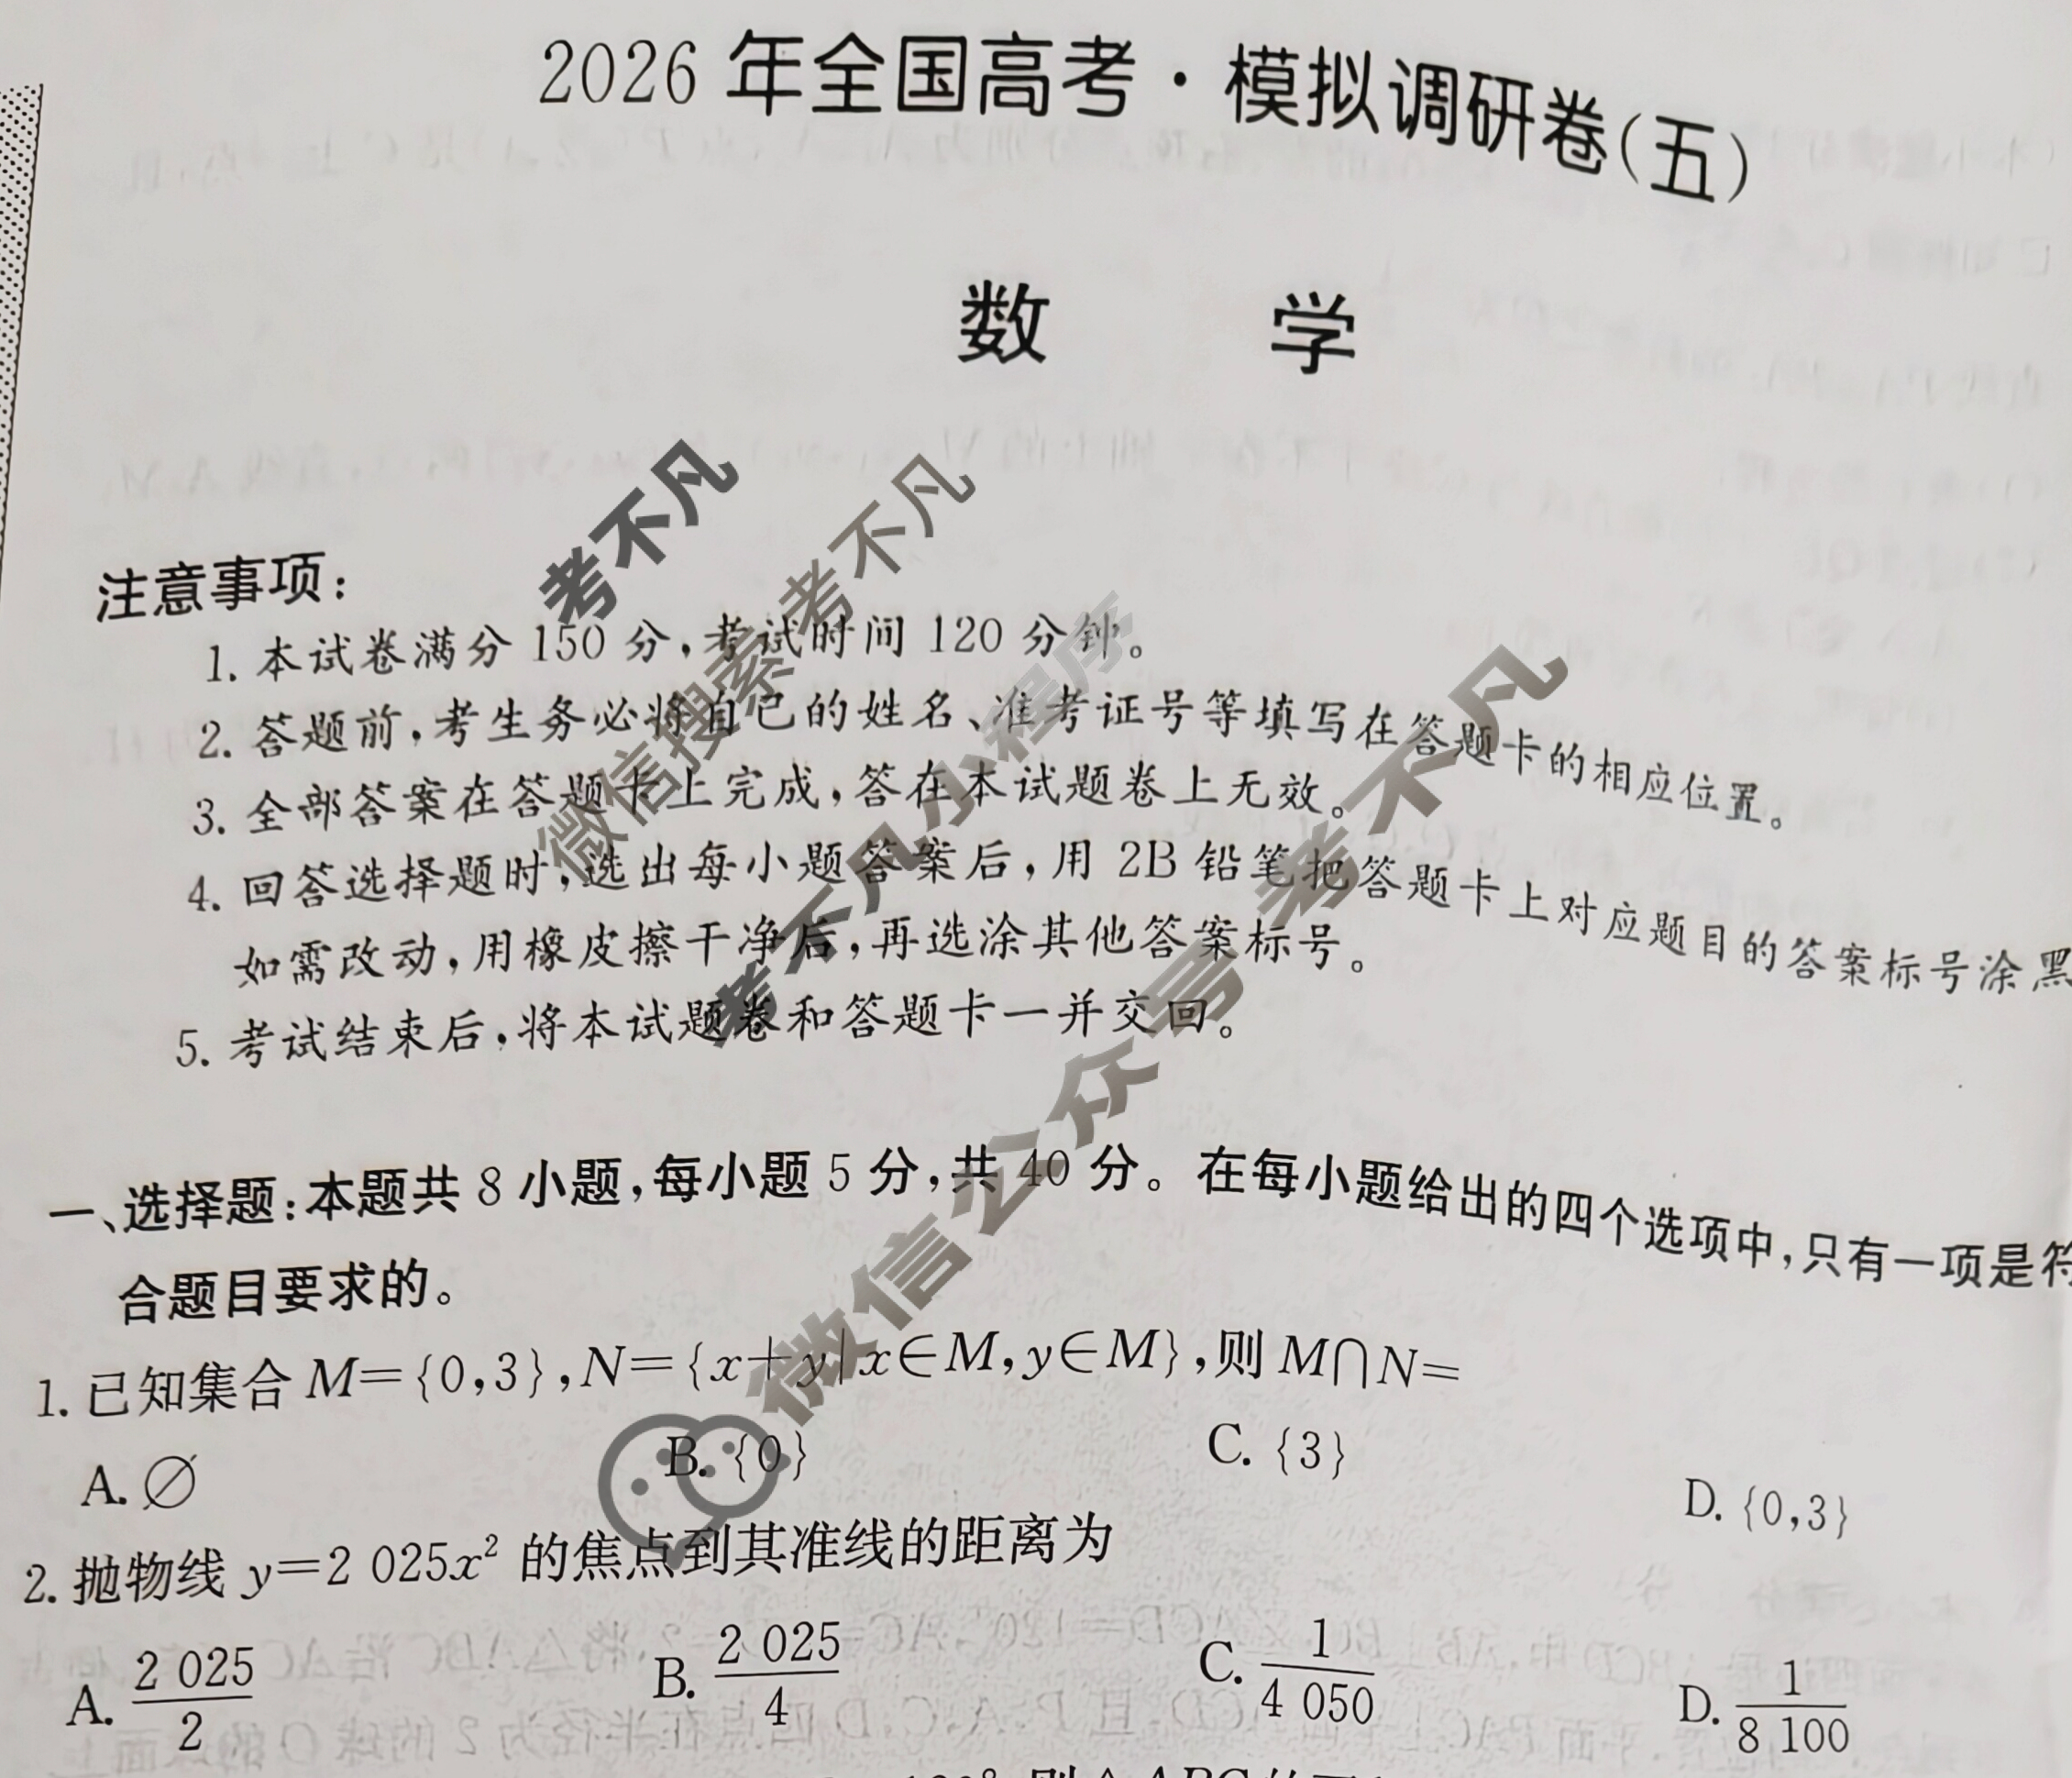 2026年全国高考·模拟调研卷(五)
数 学
注意事项:
1. 本试卷满分 150 分,考试时间 120 分钟。
2. 答题前,考生务必将自己的姓名、准考证号等填写在答题卡的相应位置。
3. 全部答案在答题卡上完成,答在本试题卷上无效。
4. 回答选择题时,选出每小题答案后,用 2B 铅笔把答题卡上对应题目的答案标号涂黑
如需改动,用橡皮擦干净后,再选涂其他答案标号。
5. 考试结束后,将本试题卷和答题卡一并交回。
一、选择题:本题共 8 小题,每小题 5 分,共 40 分。在每小题给出的四个选项中,只有一项是符
合题目要求的。
1. 已知集合 M={0,3},N={x+y|x∈M,y∈M},则 M∩N=
A. ∅ B. {0} C. {3} D. {0,3}
2. 抛物线 y=2 025x² 的焦点到其准线的距离为
A. 2 025/2 B. 2 025/4 C. 1/4 050 D. 1/8 100
考不凡
微信搜索考不凡
考不凡小程序
微信公众号考不凡